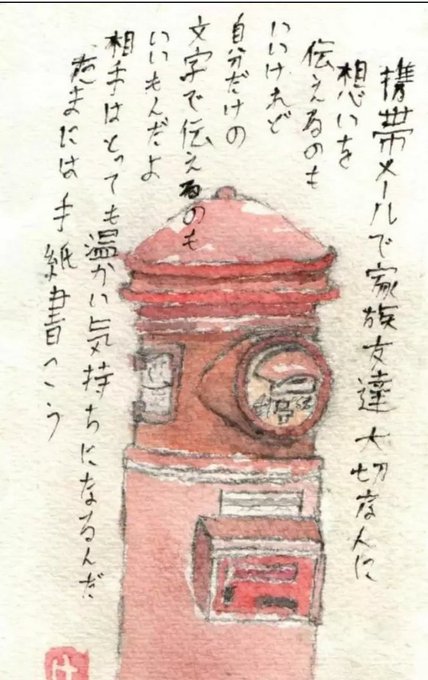 携帯メールで家族友達大切な人に
想いを
伝えるのも
いいけれど
自分だけの
文字で伝えるのも
いいもんだよ
相手はとっても温かい気持ちになるんだ
たまには手紙書こう
け